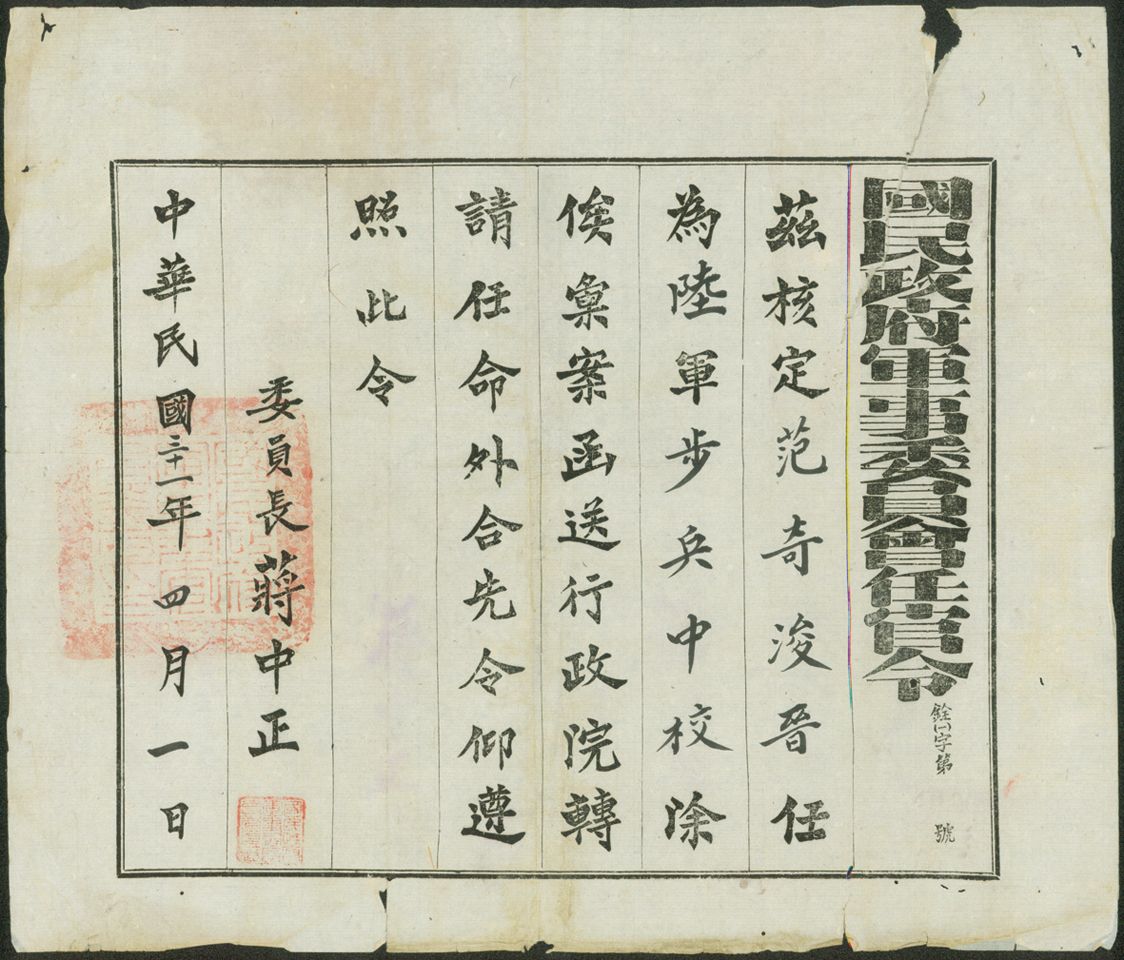 國民政府軍事委員會任官令
銓(一)字第 號
茲核定范奇浚晉任
為陸軍步兵中校除
俟彙案函送行政院轉
請任命外合先令仰遵
照此令
委員長蔣中正
中華民國三十一年四月一日